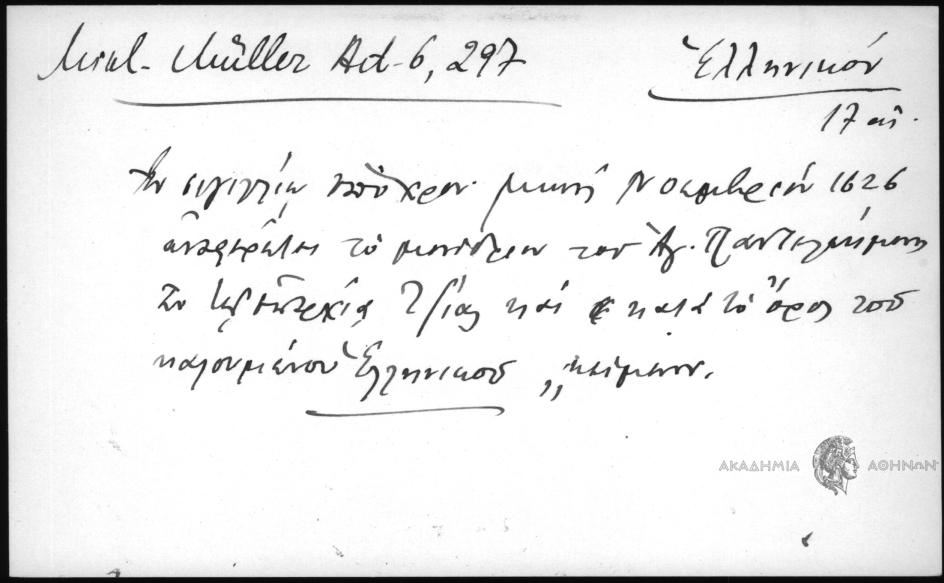 Mikl. Müller Act. 6, 297 Ἑλληνικόν
17 αἰ.
Ἐν σιγιλλίῳ ὑπὸ χρον. μηνὶ Νοεμβρίῳ 1626
ἀναφέρεται τὸ μονύδριον τοῦ Ἁγ. Παντελεήμονος
τὸ ἐν τῇ ἐπαρχίᾳ Τζίας καὶ κατὰ τὸ ὄρος τοῦ
καλουμένου Ἑλληνικοῦ „κείμενον.
ΑΚΑΔΗΜΙΑ ΑΘΗΝΩΝ